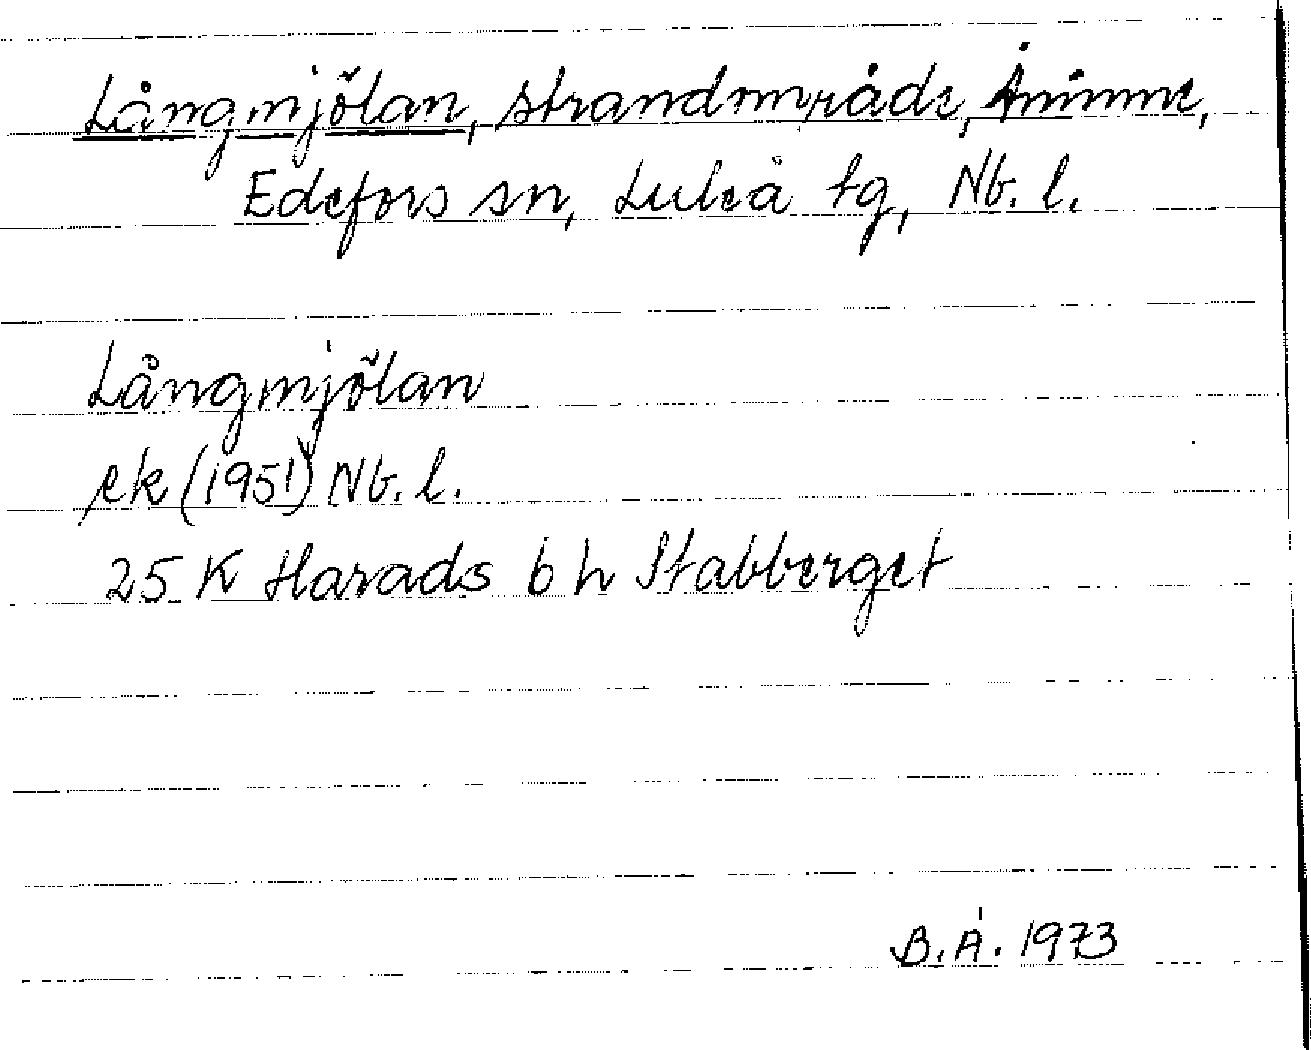 Långmjölan, strandområde, Åminne,
Edefors sn, Luleå tg, Nb. l.
Långmjölan
ek (1951) Nb. l.
25 K Harads 6 h Stabberget
B. Å. 1973